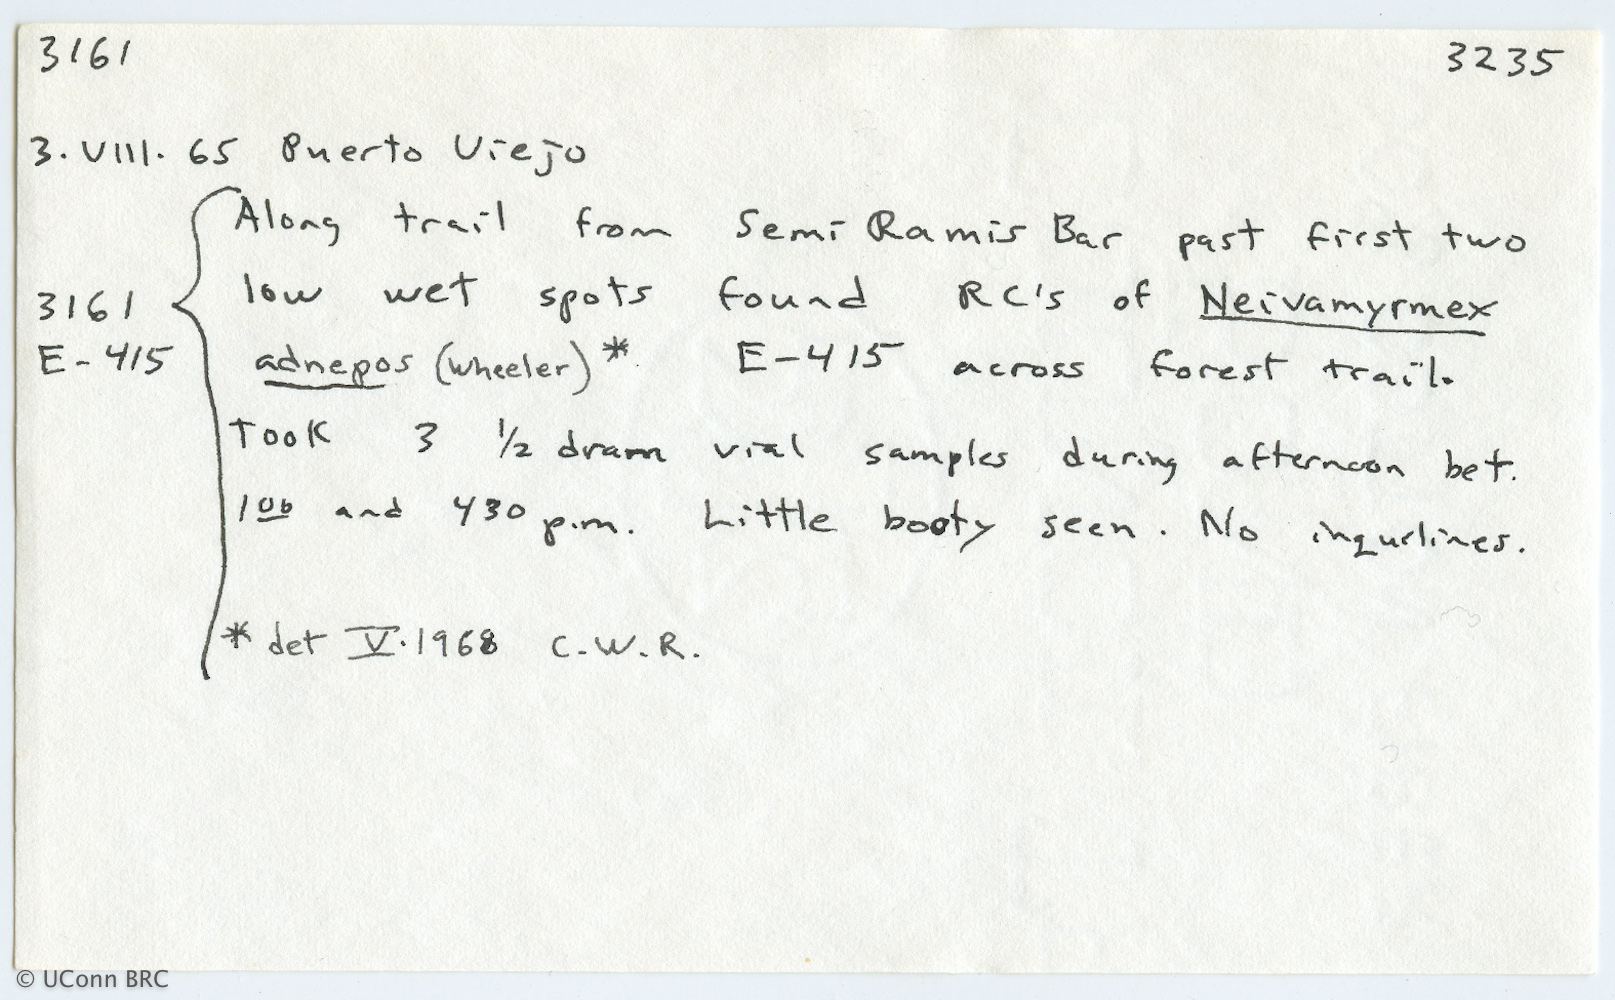 3161 3235
3. VIII. 65 Puerto Viejo
Along trail from Semi Ramis Bar past first two
low wet spots found RC's of Neivamyrmex
3161
E-415
adnepos (Wheeler)* E-415 across forest trail.
Took 3 1/2 dram vial samples during afternoon bet.
1 00 and 430 p.m. Little booty seen. No inqurlines.
* det V. 1968 C.W.R.
© UConn BRC